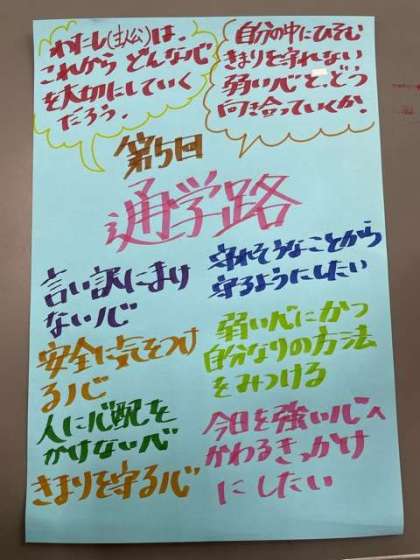 わたし(主人公)は、
これから どんな心
を大切にしていく
だろう。
自分の中にひそむ
きまりを守れない
弱い心と、どう
向き合っていくか。
第5回
通学路
言い訳にまけ
ない心
安全に気をつけ
る心
人に心配を
かけない心
きまりを守る心
守れそうなことから
守るようにしたい
弱い心にかつ
自分なりの方法
をみつける
今日を強い心へ
かわるきっかけ
にしたい